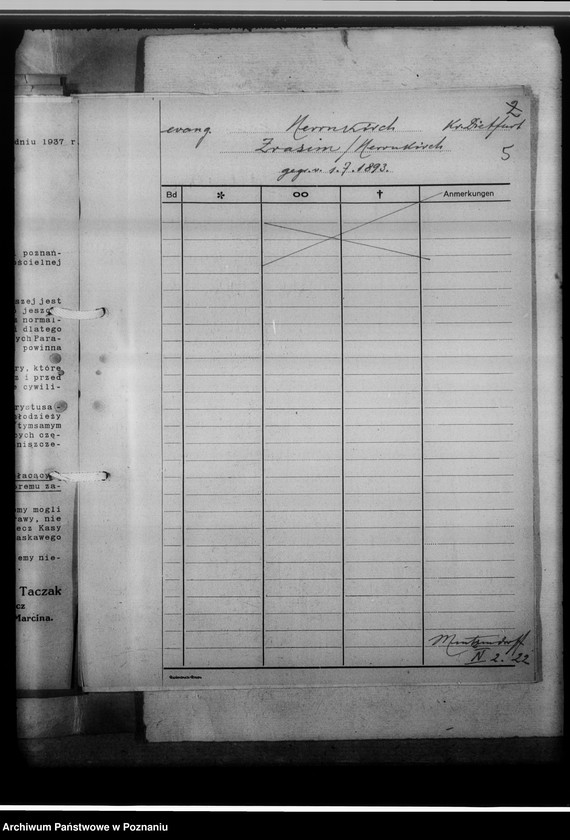 dniu 1937 r.
poznań-
ościelnej
szej jest
jeszcz
normal-
i dlatego
ych Para-
powinna
ry, które
z i przed
cywili-
rystusa -
łodzieży
tymsamym
nych czę-
niszcze-
łacący
oremu za-
my mogli
rawy, nie
ecz Kasy
askawego
emy nie-
Taczak
cz
Marcina.
2
evang. Herrnkirch Kr. Dietfurt
Zrasim / Herrnkirch 5
gegr. v. 1.7.1893.
Bd * oo † Anmerkungen
IV 2. 22
Archiwum Państwowe w Poznaniu